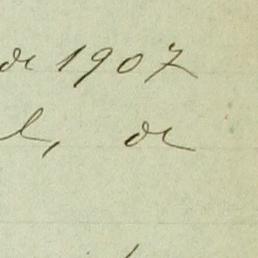 de 1907
l, de